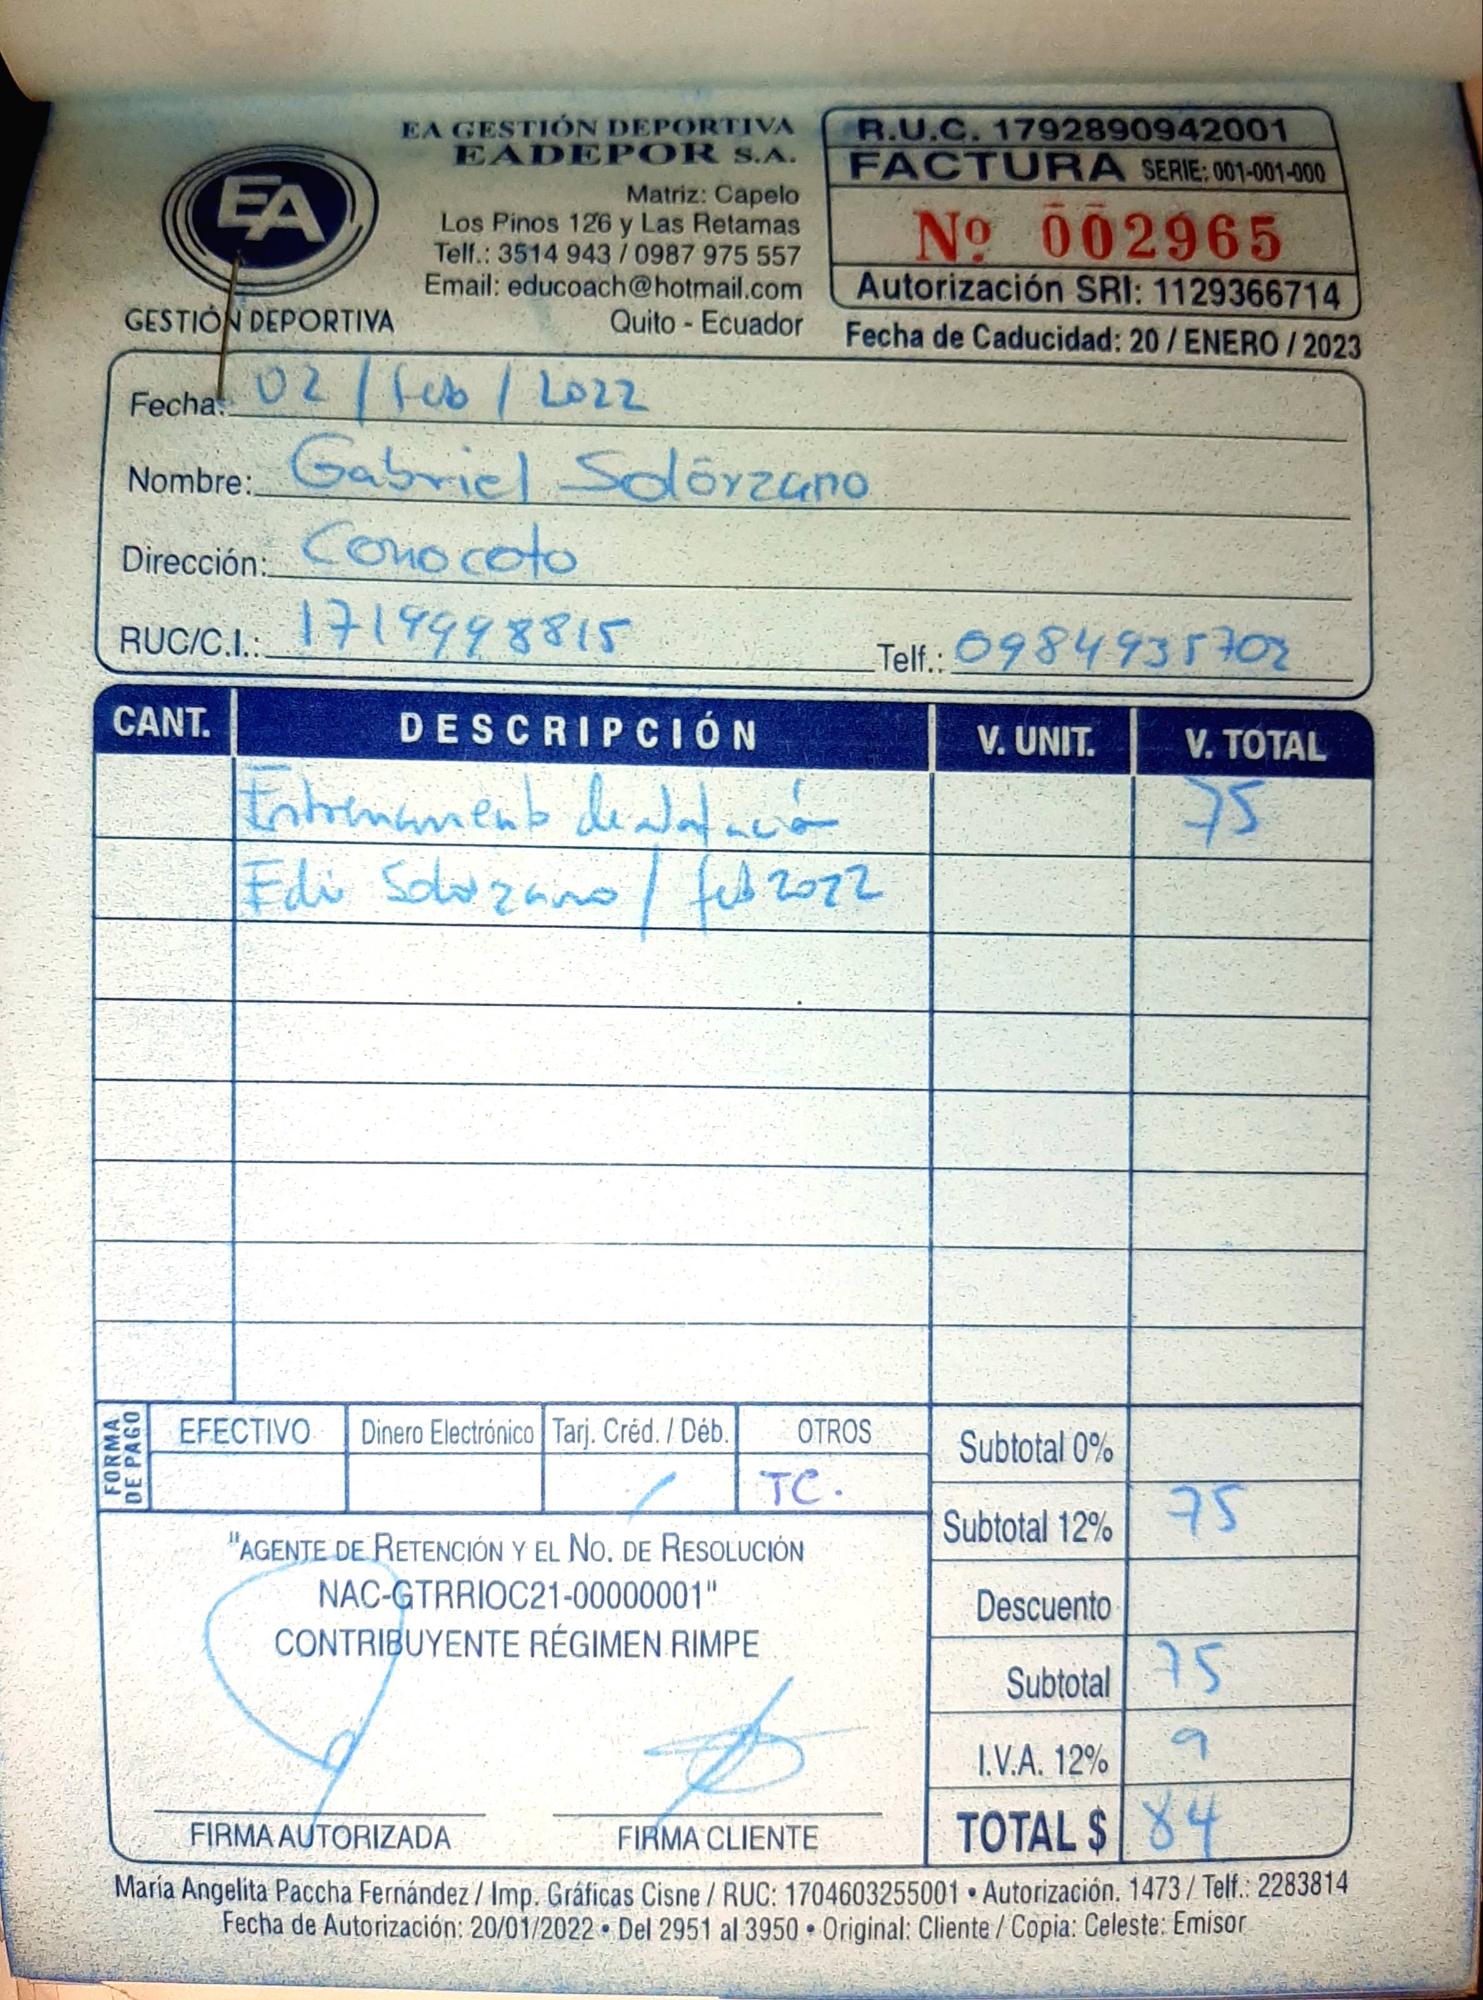 EA GESTIÓN DEPORTIVA
EADEPOR S.A.
Matriz: Capelo
Los Pinos 126 y Las Retamas
Telf.: 3514 943 / 0987 975 557
Email: educoach@hotmail.com
Quito - Ecuador
EA
GESTIÓN DEPORTIVA
R.U.C. 1792890942001
FACTURA SERIE: 001-001-000
Nº 002965
Autorización SRI: 1129366714
Fecha de Caducidad: 20 / ENERO / 2023
Fecha: 02 / feb / 2022
Nombre: Gabriel Solórzano
Dirección: Conocoto
RUC/C.I.: 1719998815 Telf.: 0984935702
CANT. DESCRIPCIÓN V. UNIT. V. TOTAL
Entrenamiento de natación 75
Edi Solorzano / feb 2022
FORMA DE PAGO
EFECTIVO Dinero Electrónico Tarj. Créd. / Déb. OTROS
/ TC.
Subtotal 0%
Subtotal 12% 75
Descuento
Subtotal 75
I.V.A. 12% 9
TOTAL $ 84
"AGENTE DE RETENCIÓN Y EL NO. DE RESOLUCIÓN
NAC-GTRRIOC21-00000001"
CONTRIBUYENTE RÉGIMEN RIMPE
FIRMA AUTORIZADA FIRMA CLIENTE
María Angelita Paccha Fernández / Imp. Gráficas Cisne / RUC: 1704603255001 • Autorización. 1473 / Telf.: 2283814
Fecha de Autorización: 20/01/2022 • Del 2951 al 3950 • Original: Cliente / Copia: Celeste: Emisor